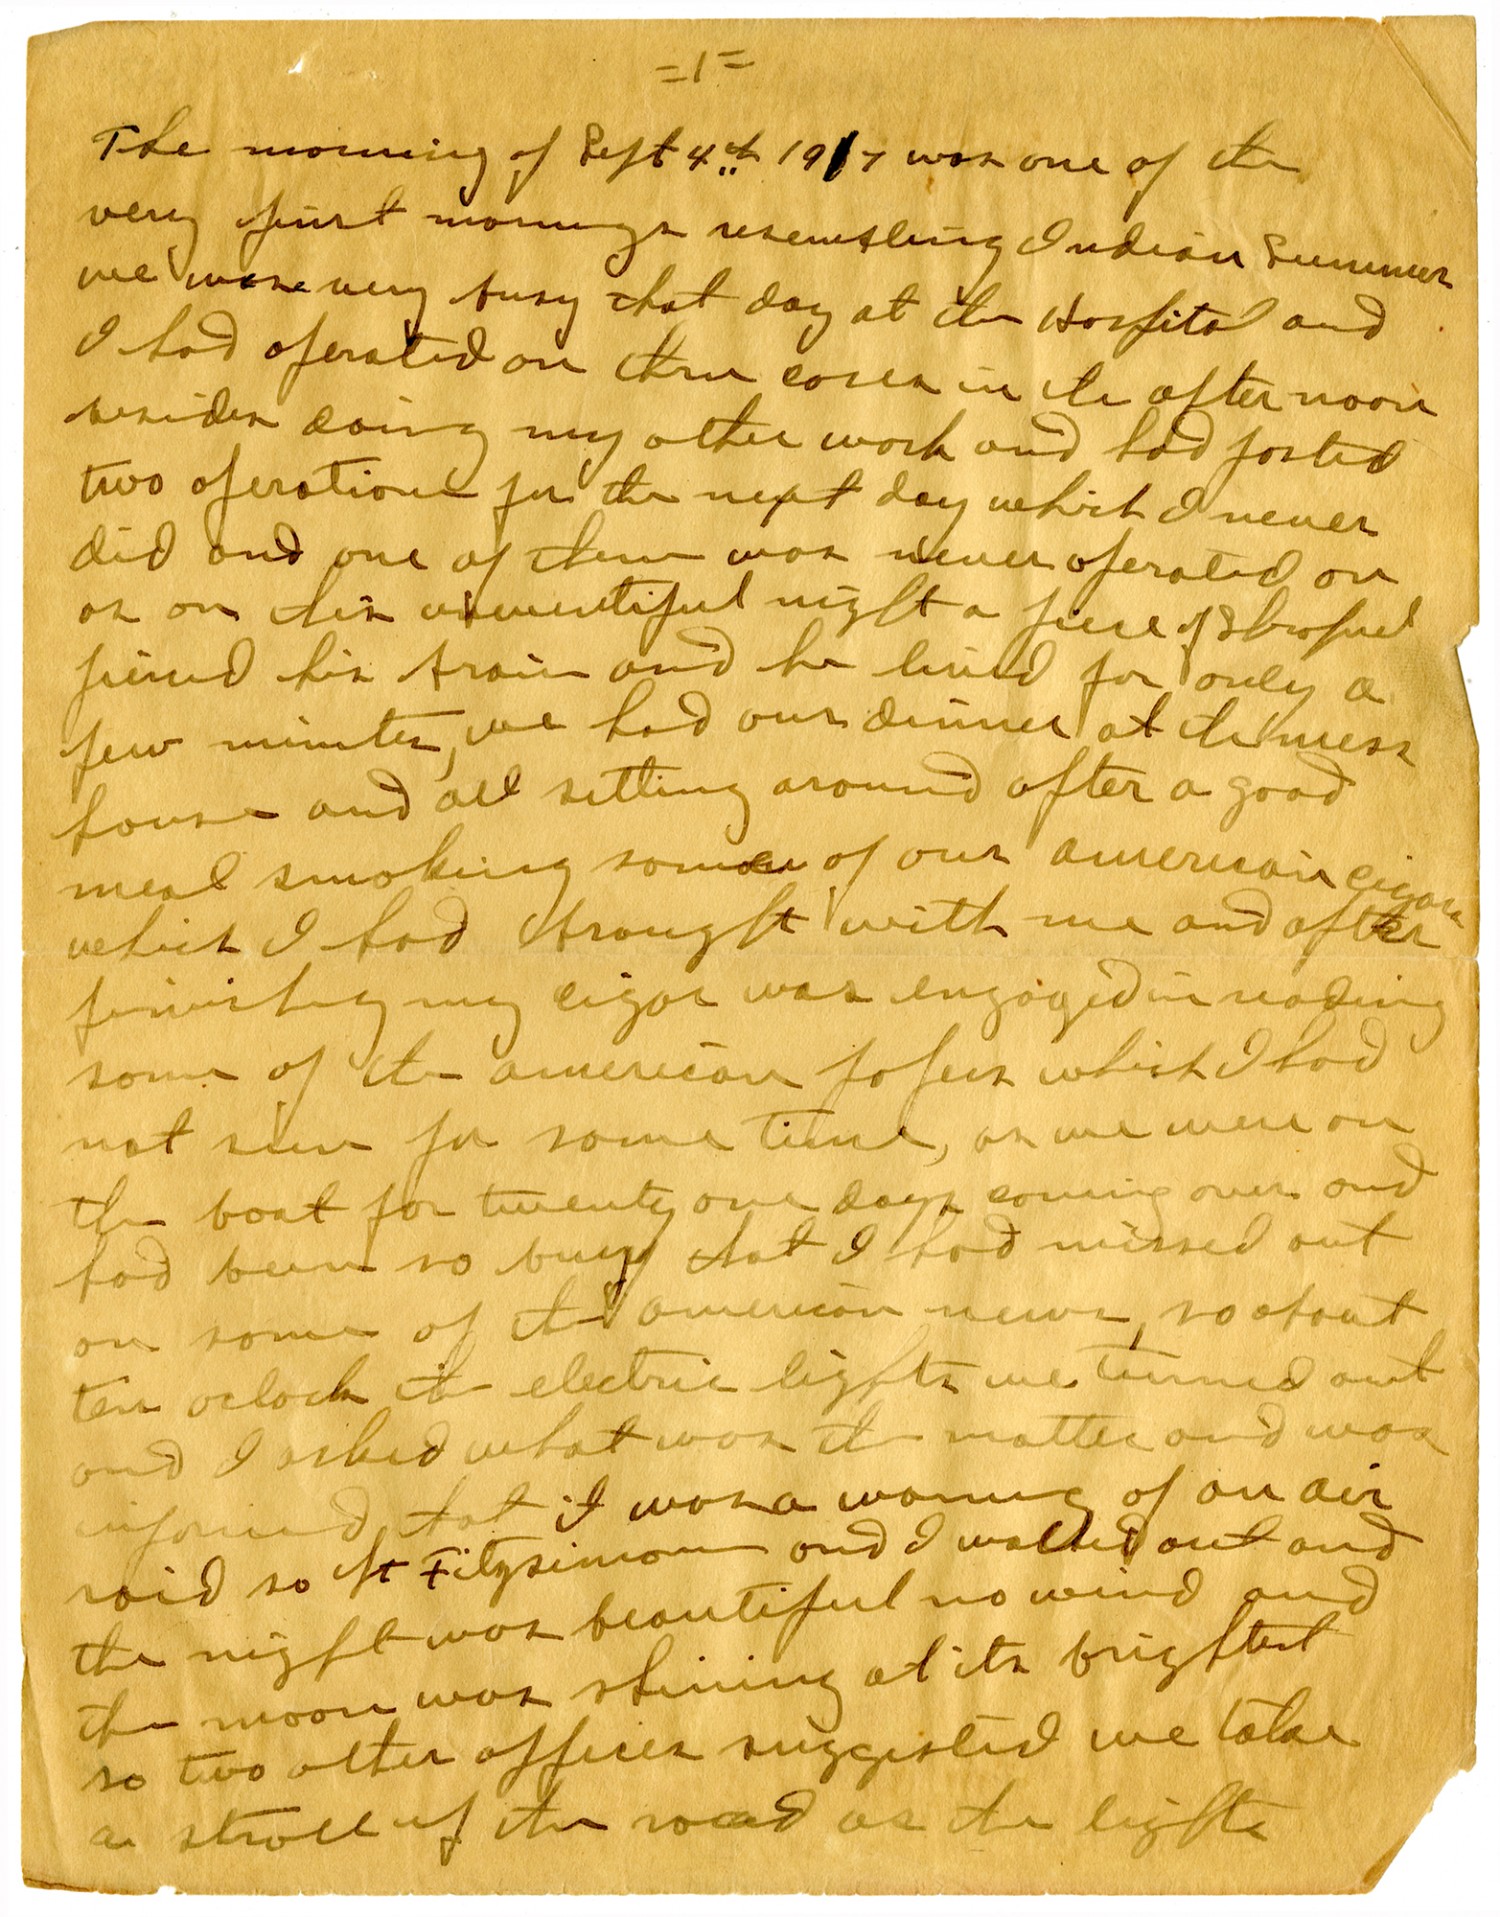 =1=
The morning of Sept 4th 1917 was one of the
very first mornings resembling Indian Summer
we were very busy that day at the Hospital and
I had operated on three cases in the afternoon
besides doing my other work and had posted
two operations for the next day which I never
did and one of them was never operated on
as on this night a piece of Shrapnel
pierced his brain and he lived for only a
few minutes, we had our dinner at the mess
house and all setting around after a good
meal smoking some of our american cigars
which I had brought with me and after
finishing my cigar was engaged in reading
some of the american papers which I had
not seen for some time, as we were on
the boat for twenty one days coming over and
had been so busy that I had missed out
on some of the american news, so about
ten oclock the electric lights we turned out
and I asked what was the matter and was
informed that it was a warning of an air
raid so Lt Fitzsimons and I walked out and
the night was beautiful no wind and
the moon was shining at its brightest
so two other officers suggested we take
a stroll up the road as the lights